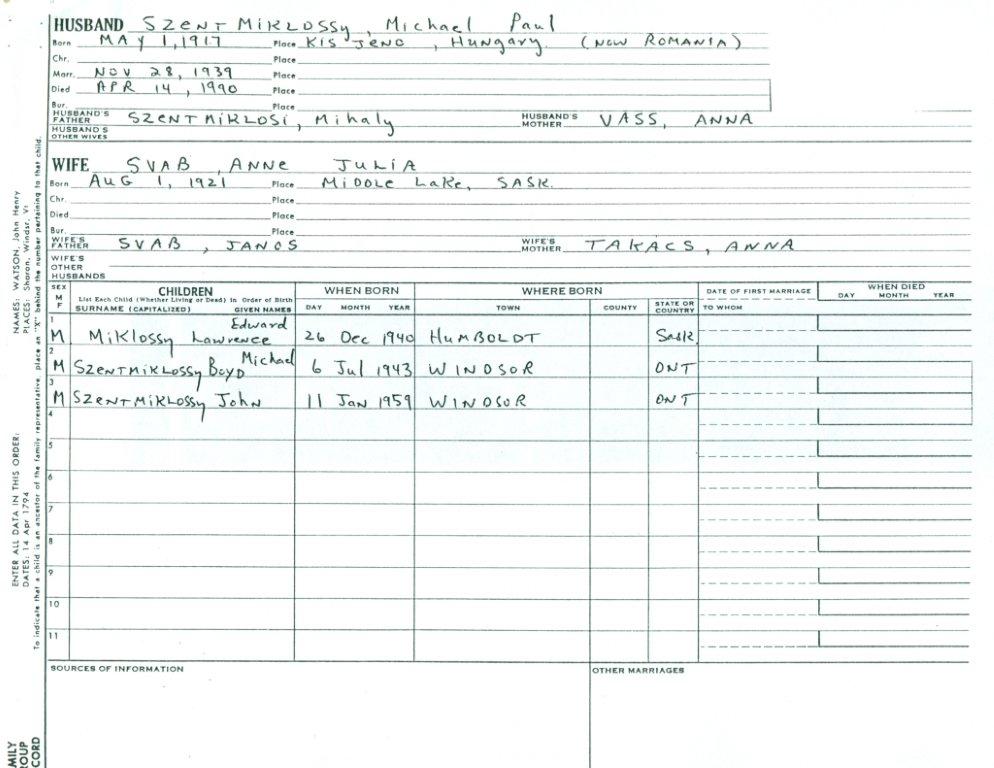 HUSBAND SZENTMIKLOSSY, Michael Paul
Born MAY 1, 1917 Place KIS JENO, Hungary. (NOW ROMANIA)
Chr. Place
Marr. NOV 28, 1939 Place
Died APR 14, 1990 Place
Bur. Place
HUSBAND'S FATHER SZENTMIKLOSI, Mihaly HUSBAND'S MOTHER VASS, ANNA
HUSBAND'S OTHER WIVES
WIFE SVAB, ANNE JULIA
Born AUG 1, 1921 Place MIDDLE LAKE, SASK.
Chr. Place
Died Place
Bur. Place
WIFE'S FATHER SVAB, JANOS WIFE'S MOTHER TAKACS, ANNA
WIFE'S OTHER HUSBANDS
SEX M F CHILDREN WHEN BORN WHERE BORN DATE OF FIRST MARRIAGE WHEN DIED
List Each Child (Whether Living or Dead) in Order of Birth
SURNAME (CAPITALIZED) GIVEN NAMES DAY MONTH YEAR TOWN COUNTY STATE OR COUNTRY TO WHOM DAY MONTH YEAR
1 M MIKLOSSY Lawrence Edward 26 Dec 1940 HUMBOLDT Sask.
2 M SZENTMIKLOSSY Boyd Michael 6 Jul 1943 WINDSOR ONT
3 M SZENTMIKLOSSY John 11 Jan 1959 WINDSOR ONT
4
5
6
7
8
9
10
11
SOURCES OF INFORMATION OTHER MARRIAGES
ENTER ALL DATA IN THIS ORDER:
NAMES: WATSON, John Henry
DATES: 14 Apr 1794
PLACES: Sharon, Windsr, Vt
To indicate that a child is an ancestor of the family representative, place an "X" behind the number pertaining to that child.
MILY
ROUP
CORD